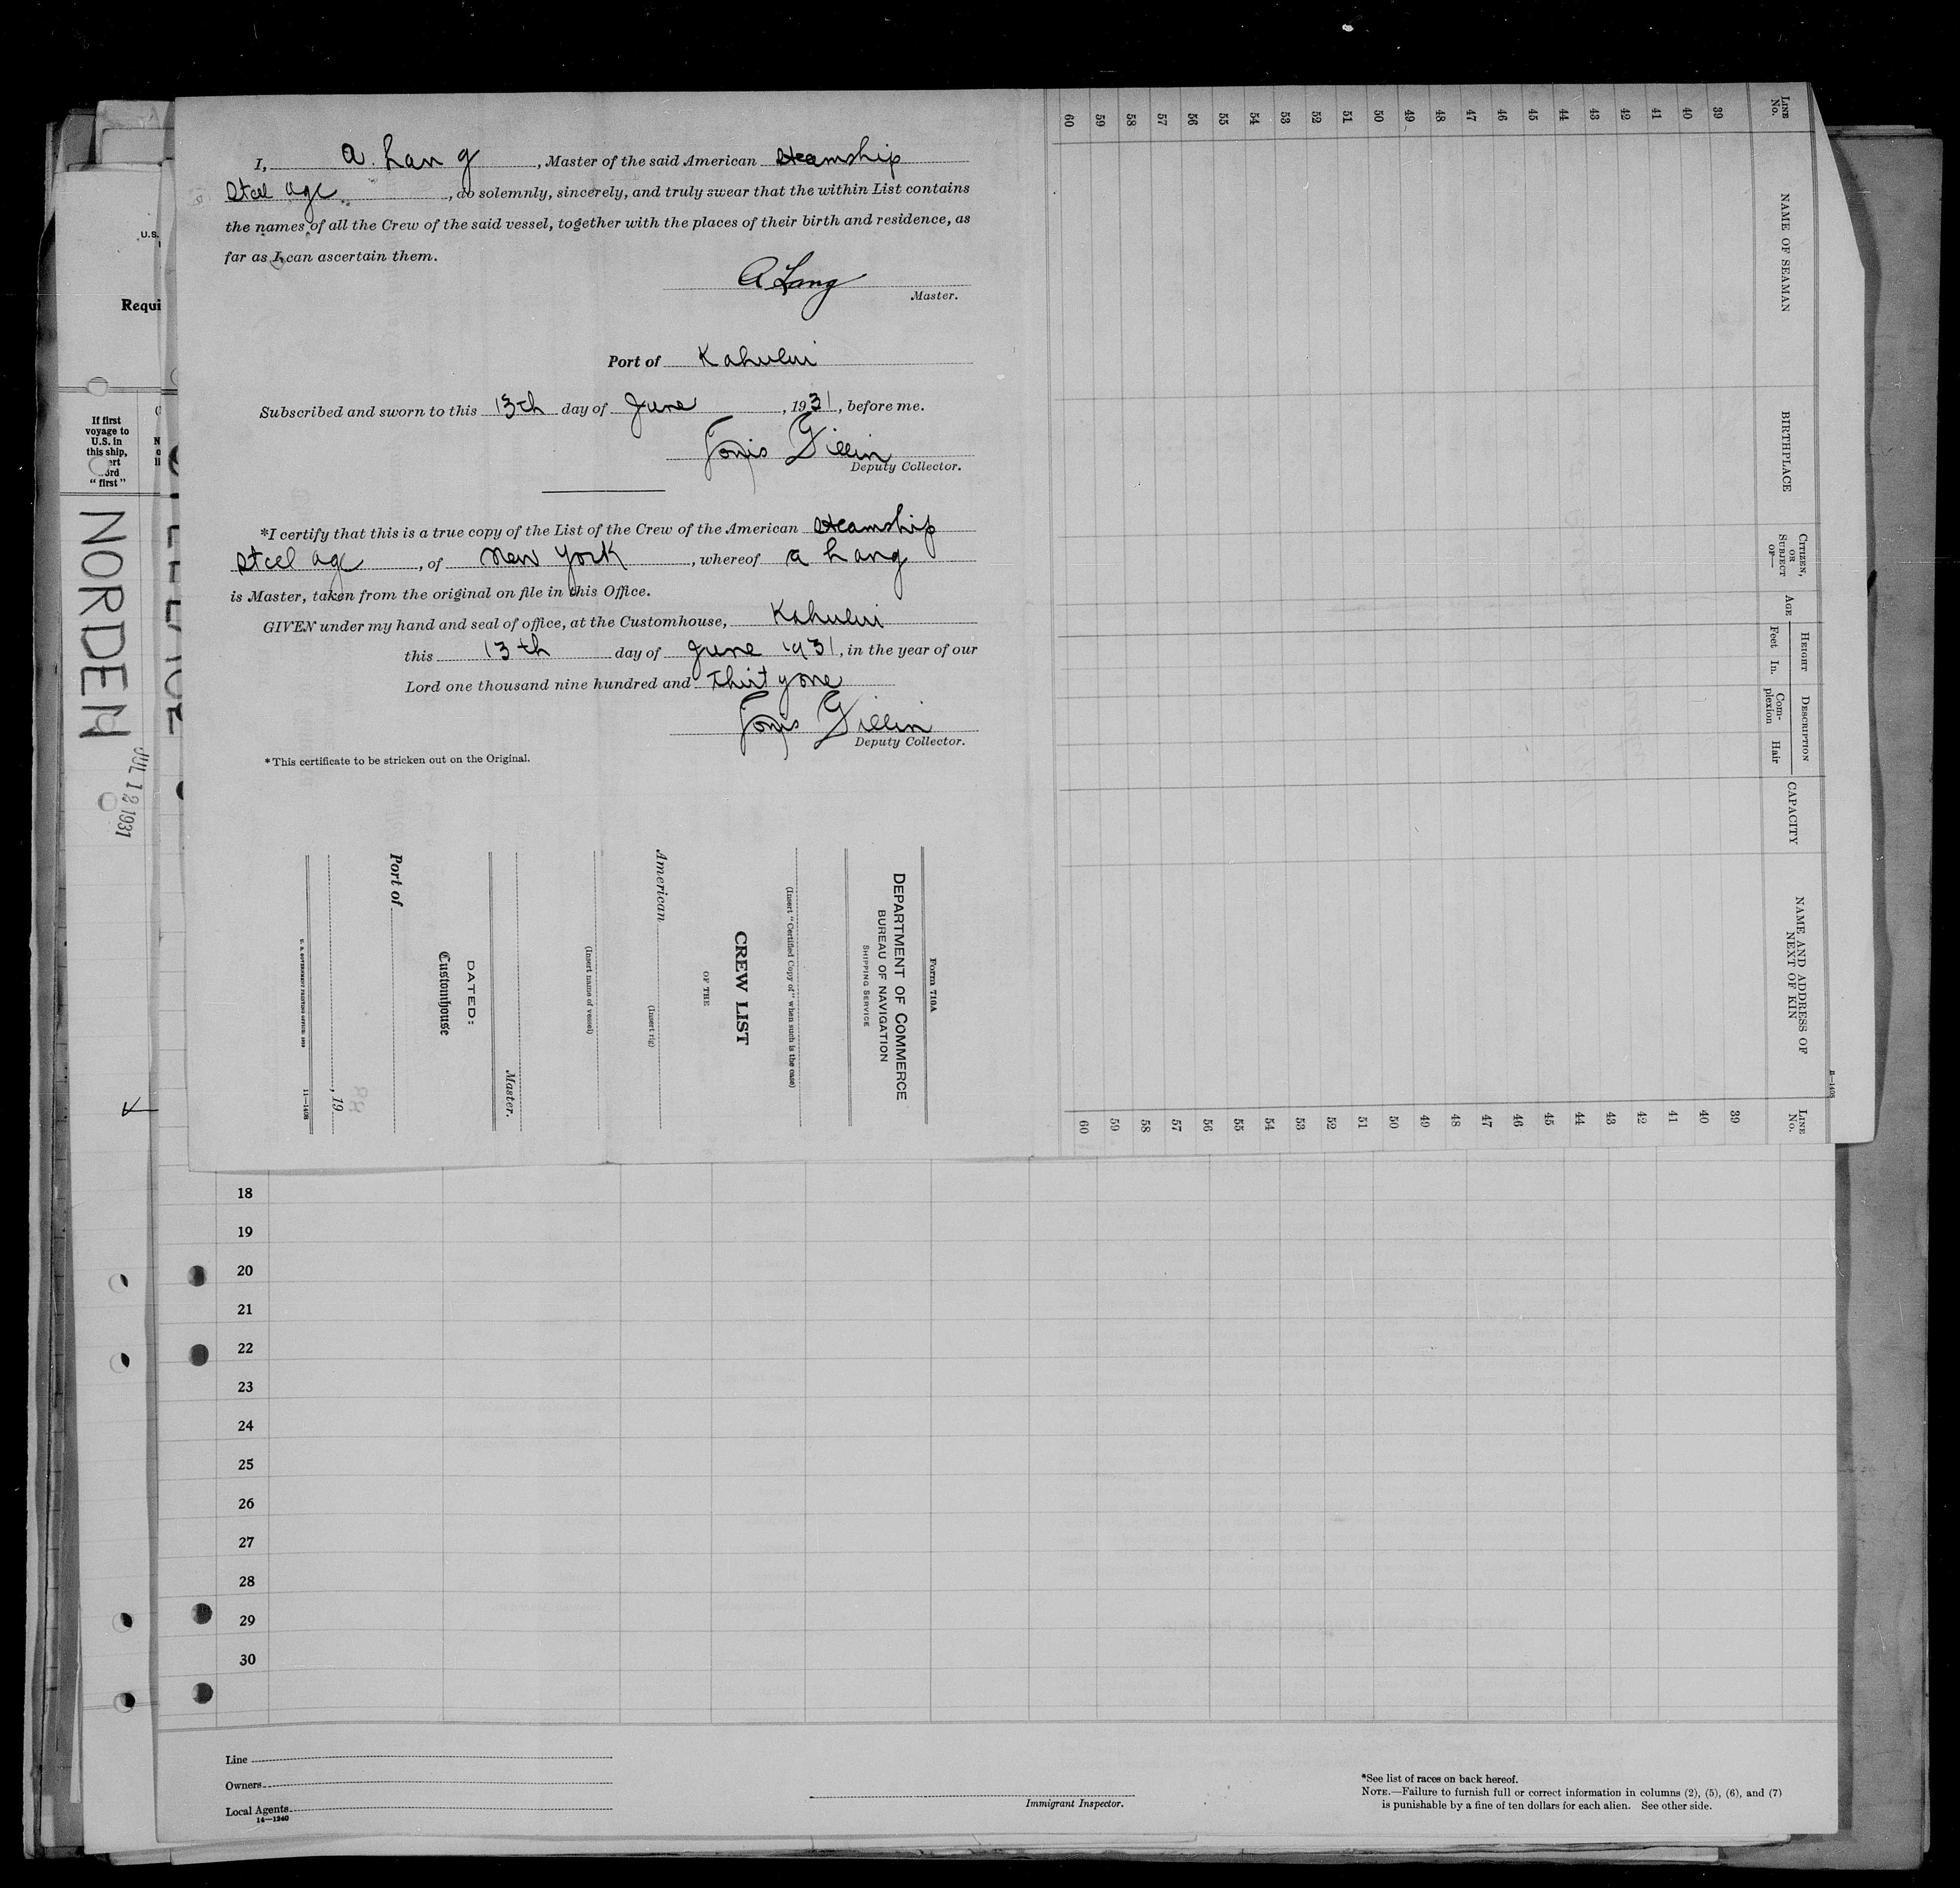 I, A. Lang, Master of the said American Steamship
Steel Age, do solemnly, sincerely, and truly swear that the within List contains
the names of all the Crew of the said vessel, together with the places of their birth and residence, as
far as I can ascertain them.
A Lang
Master.
Port of Kahului
Subscribed and sworn to this 13th day of June, 1931, before me.
Deputy Collector.
*I certify that this is a true copy of the List of the Crew of the American Steamship
Steel Age, of New York, whereof A Lang
is Master, taken from the original on file in this Office.
GIVEN under my hand and seal of office, at the Customhouse, Kahului
this 13th day of June 1931, in the year of our
Lord one thousand nine hundred and Thirty one
Deputy Collector.
*This certificate to be stricken out on the Original.
Form 710A
DEPARTMENT OF COMMERCE
BUREAU OF NAVIGATION
SHIPPING SERVICE
(Insert "Certified Copy of" when such is the case)
CREW LIST
OF THE
American
(Insert rig)
(Insert name of vessel)
Master.
DATED:
Customhouse
Port of
, 19
11—1408
LINE No.
NAME OF SEAMAN
BIRTHPLACE
CITIZEN, OR SUBJECT OF—
AGE
HEIGHT
Feet In.
DESCRIPTION
Complexion Hair
CAPACITY
NAME AND ADDRESS OF NEXT OF KIN
LINE No.
39
40
41
42
43
44
45
46
47
48
49
50
51
52
53
54
55
56
57
58
59
60
39
40
41
42
43
44
45
46
47
48
49
50
51
52
53
54
55
56
57
58
59
60
U.S.
Requi
If first
voyage to
U.S. in
this ship,
"first"
NORDEN
JUL 12 1931
18
19
20
21
22
23
24
25
26
27
28
29
30
Line
Owners
Local Agents
14—1240
Immigrant Inspector.
*See list of races on back hereof.
NOTE.—Failure to furnish full or correct information in columns (2), (5), (6), and (7)
is punishable by a fine of ten dollars for each alien. See other side.